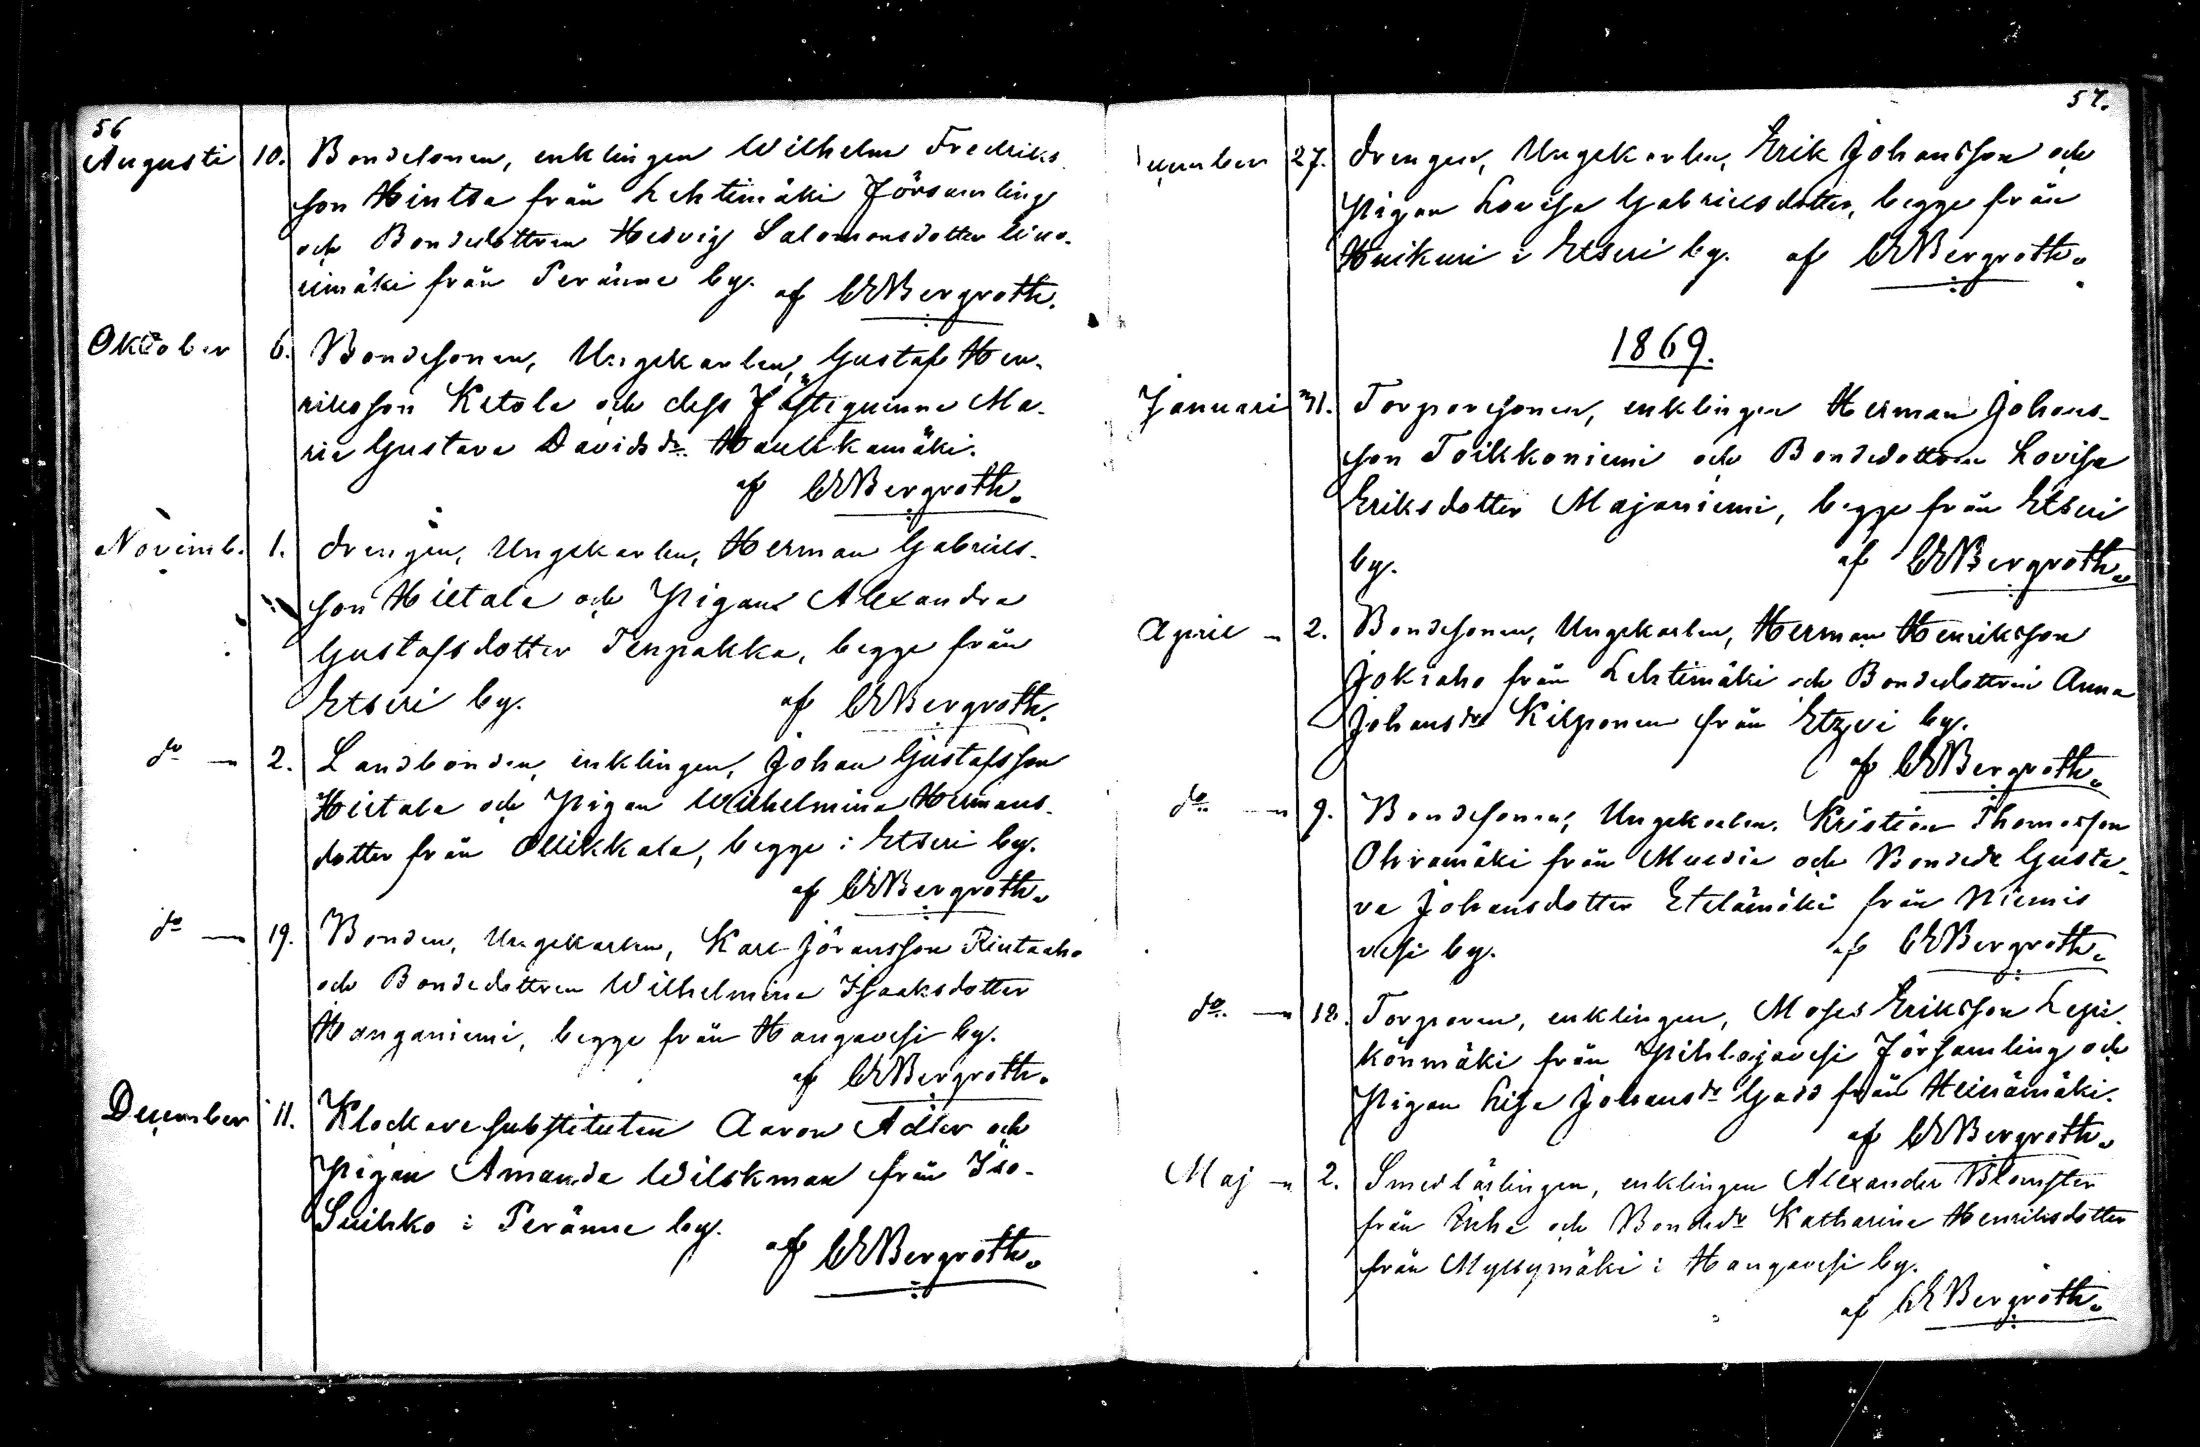 56
Augusti 10. Bondesonen, enklingen Wilhelm Fredriks
son Hintsa från Lehtimäki Församling
och Bondedottren Hedvig Salomonsdotter Uuro-
nimäki från Peränne by. af CEBergroth.
Oktober 6. Bondesonen, Ungekarlen, Gustaf Hen-
riksson Ketola och dess Fästequinna Ma-
ria Gustava Davidsdr. Haukkamäki.
af CEBergroth.
Novemb. 1. Drengen, Ungekarlen, Herman Gabriels-
son Hietala och Pigan Alexandra
Gustafsdotter Tenpakka, begge från
Etseri by. af CEBergroth.
do — 2. Landbonden, enklingen, Johan Gustafsson
Hietala och Pigan Wilhelmina Hermans-
dotter från Ollikkala, begge i Etseri by.
af CEBergroth.
do — 19. Bonden, Ungekarlen, Karl Göransson Rintaaho
och Bondedottren Wilhelmina Isaaksdotter
Hanganiemi, begge från Hangavesi by.
af CEBergroth.
December 11. Klockaresubstituten Aaron Adler och
Pigan Amanda Wilskman från Iso-
Suihko i Peränne by. af CEBergroth.
57.
December 27. Drengen, Ungekarlen, Erik Johansson och
Pigan Lovisa Gabrielsdotter, begge från
Huikuri i Etseri by. af CEBergroth.
1869.
Januari 31. Torparesonen, enklingen Herman Johans-
son Toikkoniemi och Bondedottren Lovisa
Eriksdotter Majaniemi, begge från Etseri
by. af CEBergroth.
April — 2. Bondesonen, Ungekarlen, Herman Henriksson
Jokiaho från Lehtimäki och Bondedottren Anna
Johansdr Kilponen från Etzeri by.
af CEBergroth.
do. — 9. Bondesonen, Ungekarlen, Kristian Thomasson
Ohramäki från Multia och Bondedr Gusta-
va Johansdotter Etelämäki från Niemis
vesi by. af CEBergroth.
do. — 18. Torparen, enklingen, Moses Eriksson Lepi-
könmäki från Pihlajavesi Församling och
Pigan Lisa Johansdr Gadd från Heinämäki.
af CEBergroth.
Maj — 2. Smedlärlingen, enklingen Alexander Blomster
från Inha och Bondedr Katharina Henriksdotter
från Myllymäki i Hangavesi by.
af CEBergroth.